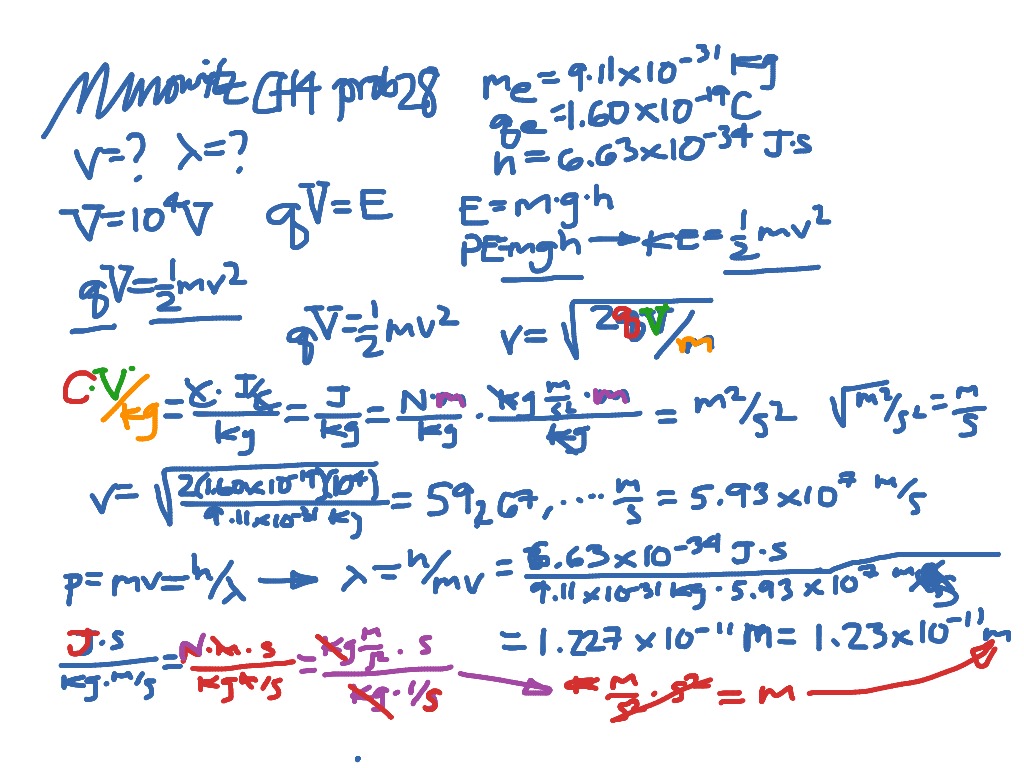 CH4 prob 28
mₑ = 9.11×10⁻³¹ kg
qₑ = 1.60×10⁻¹⁹ C
h = 6.63×10⁻³⁴ J·s
v=? λ=?
V=10⁴V qV=E
E=m·g·h
PE=mgh → KE=½mv²
qV=½mv²
qV=½mv² v=√(2qV/m)
C·V/kg = C·J/C/kg = J/kg = N·m/kg · kg m/s²·m/kg = m²/s² √m²/s² = m/s
v=√(2(1.60×10⁻¹⁹)(10⁴)/9.11×10⁻³¹ kg) = 59,267,.... m/s = 5.93×10⁷ m/s
p=mv=h/λ → λ=h/mv = 6.63×10⁻³⁴ J·s/9.11×10⁻³¹ kg·5.93×10⁷ m/s
= 1.227×10⁻¹¹ m = 1.23×10⁻¹¹ m
J·s/kg·m/s = N·m·s/kg m/s = kg m/s²·s/kg·1/s → m/s²·s² = m